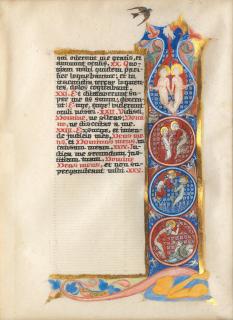 qui oderunt me gratis, et
annuunt oculis. XX. Quo-
niam mihi quidem paci-
fice loquebantur: et in
iracundia terræ loquen-
tes, dolos cogitabant.
XXI. Et dilataverunt su-
per me os suum: dixerunt:
Euge, euge, viderunt
oculi nostri. XXII. Vidisti,
Domine, ne sileas: Domi-
ne, ne discedas a me.
XXIII. Exsurge, et inten-
de judicio meo, Deus me-
us, et Dominus meus in
causam meam. XXIV. Ju-
dica me secundum jus-
titiam tuam, Domine
Deus meus, et non su-
pergaudeant mihi. XXV.